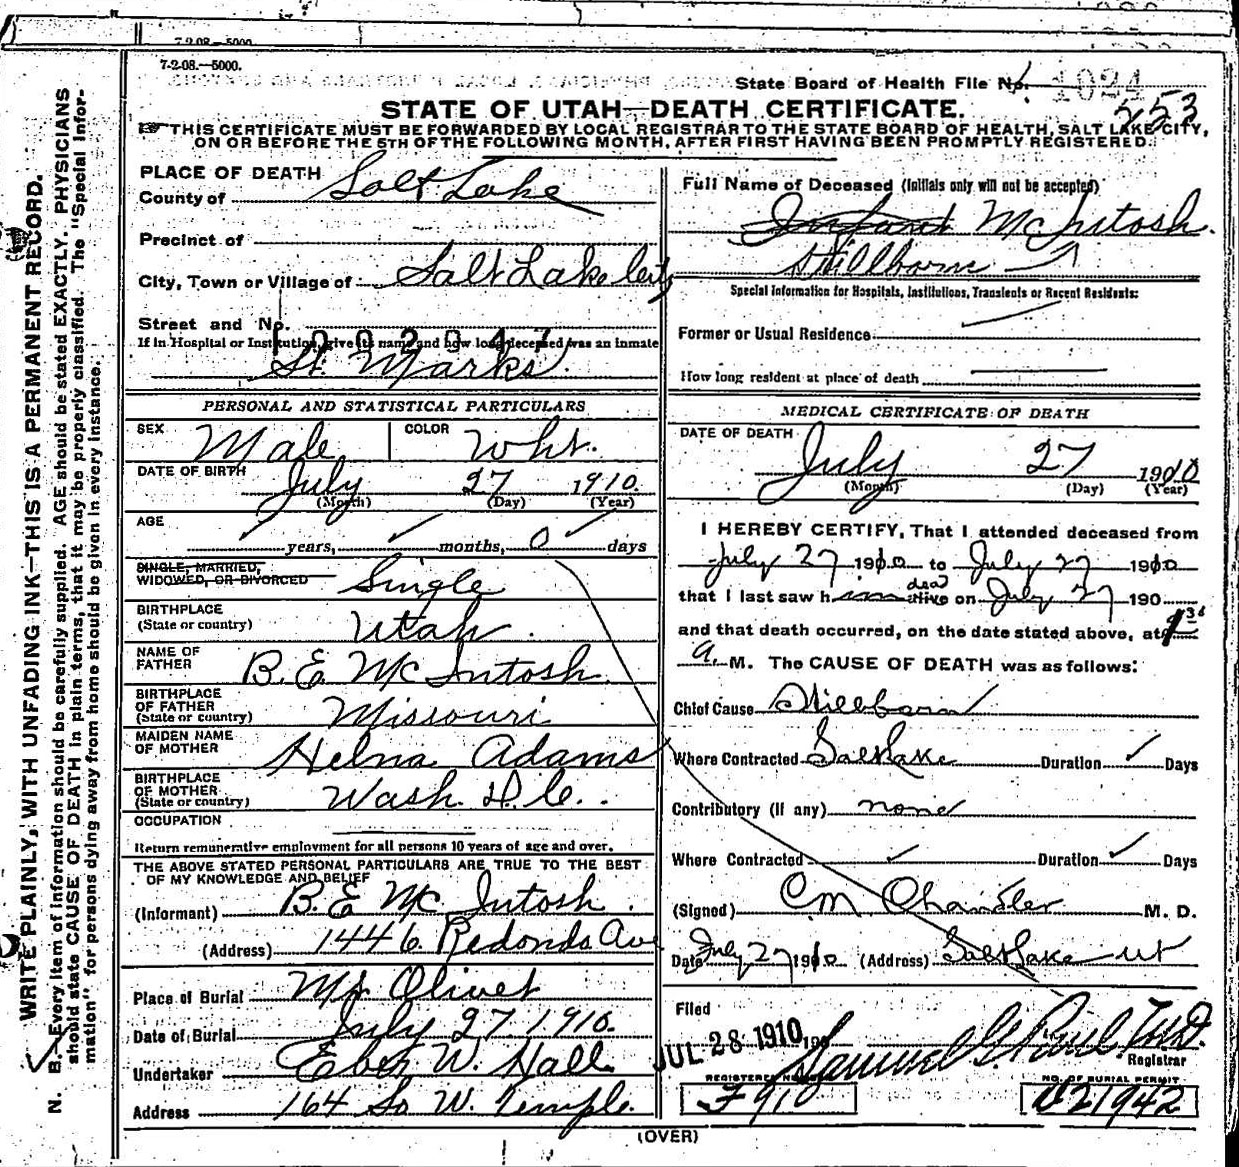 7-2-08.—5000.
7-2-08.—5000.
State Board of Health File No. 1024
253
STATE OF UTAH—DEATH CERTIFICATE.
THIS CERTIFICATE MUST BE FORWARDED BY LOCAL REGISTRAR TO THE STATE BOARD OF HEALTH, SALT LAKE CITY,
ON OR BEFORE THE 5TH OF THE FOLLOWING MONTH, AFTER FIRST HAVING BEEN PROMPTLY REGISTERED.
WRITE PLAINLY, WITH UNFADING INK—THIS IS A PERMANENT RECORD.
N. B.—Every item of information should be carefully supplied. AGE should be stated EXACTLY. PHYSICIANS
should state CAUSE OF DEATH in plain terms, that it may be properly classified. The "Special Infor-
mation" for persons dying away from home should be given in every instance.
PLACE OF DEATH
County of Salt Lake
Precinct of
City, Town or Village of Salt Lake City
Street and No.
1002947
If in Hospital or Institution, give its name and how long deceased was an inmate
St. Marks.
PERSONAL AND STATISTICAL PARTICULARS
SEX Male COLOR Wht.
DATE OF BIRTH July 27 1910.
(Month) (Day) (Year)
AGE
years, months, 0 days
SINGLE, MARRIED,
WIDOWED, OR DIVORCED Single
BIRTHPLACE
(State or country) Utah.
NAME OF
FATHER B. E. McIntosh
BIRTHPLACE
OF FATHER
(State or country) Missouri
MAIDEN NAME
OF MOTHER Helna Adams
BIRTHPLACE
OF MOTHER
(State or country) Wash. D.C.
OCCUPATION
Return remunerative employment for all persons 10 years of age and over.
THE ABOVE STATED PERSONAL PARTICULARS ARE TRUE TO THE BEST
OF MY KNOWLEDGE AND BELIEF
(Informant) B. E. McIntosh.
(Address) 1446 Redondo Ave
Place of Burial Mt Olivet
Date of Burial July 27 1910.
Undertaker Eber W. Hall.
Address 164 So W. Temple.
Full Name of Deceased (Initials only will not be accepted)
Infant McIntosh.
Stillborn
Special Information for Hospitals, Institutions, Transients or Recent Residents:
Former or Usual Residence
How long resident at place of death
MEDICAL CERTIFICATE OF DEATH
DATE OF DEATH
July 27 1910
(Month) (Day) (Year)
I HEREBY CERTIFY, That I attended deceased from
July 27 1910 to July 27 1910
that I last saw him dead alive on July 27 190
and that death occurred, on the date stated above, at 9 30
a. M. The CAUSE OF DEATH was as follows:
Chief Cause Stillborn
Where Contracted Salt Lake Duration Days
Contributory (If any) none
Where Contracted Duration Days
(Signed) C M Chandler M. D.
Date July 27 1910 (Address) Salt Lake Ut
Filed
JUL 28 1910 190
Samuel G. Paul M.D.
Registrar
REGISTERED NO.
F 910
NO. OF BURIAL PERMIT
U21942
(OVER)